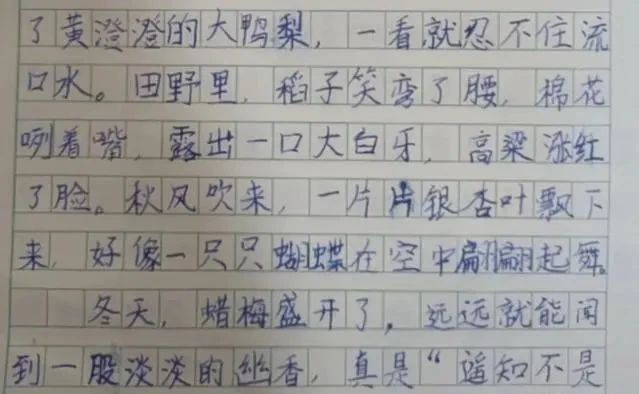 了黄澄澄的大鸭梨，一看就忍不住流
口水。田野里，稻子笑弯了腰，棉花
咧着嘴，露出一口大白牙，高粱涨红
了脸。秋风吹来，一片片银杏叶飘下
来，好像一只只蝴蝶在空中翩翩起舞。
冬天，蜡梅盛开了，远远就能闻
到一股淡淡的幽香，真是“遥知不是